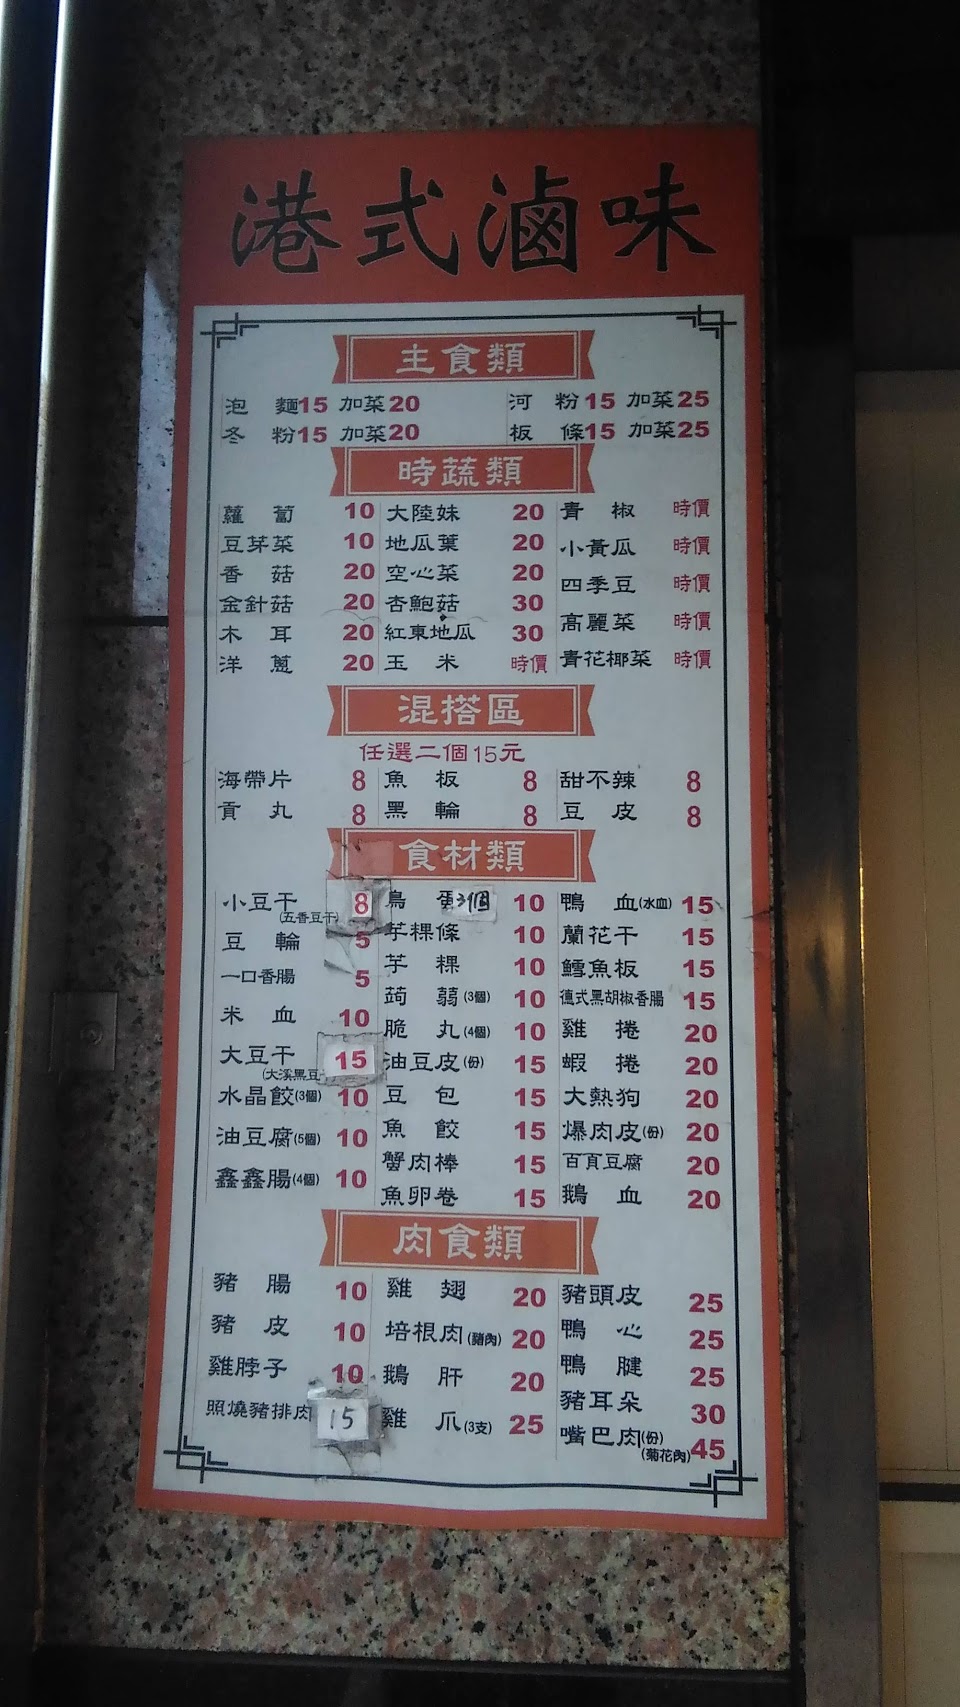 港式滷味
主食類
泡麵15 加菜20 河粉15 加菜25
冬粉15 加菜20 板條15 加菜25
時蔬類
蘿蔔 10 大陸妹 20 青椒 時價
豆芽菜 10 地瓜葉 20 小黃瓜 時價
香菇 20 空心菜 20 四季豆 時價
金針菇 20 杏鮑菇 30 高麗菜 時價
木耳 20 紅東地瓜 30 青花椰菜 時價
洋蔥 20 玉米 時價
混搭區
任選二個15元
海帶片 8 魚板 8 甜不辣 8
貢丸 8 黑輪 8 豆皮 8
食材類
小豆干(五香豆干) 8
豆輪 5
一口香腸 5
米血 10
大豆干(大溪黑豆 15
水晶餃(3個) 10
油豆腐(5個) 10
鑫鑫腸(4個) 10
鳥蛋3個 10
芋粿條 10
芋粿 10
蒟蒻(3個) 10
脆丸(4個) 10
油豆皮(份) 15
豆包 15
魚餃 15
蟹肉棒 15
魚卵卷 15
鴨血(水血) 15
蘭花干 15
鱈魚板 15
德式黑胡椒香腸 15
雞捲 20
蝦捲 20
大熱狗 20
爆肉皮(份) 20
百頁豆腐 20
鵝血 20
肉食類
豬腸 10
豬皮 10
雞脖子 10
照燒豬排肉 15
雞翅 20
培根肉(豬肉) 20
鵝肝 20
雞爪(3支) 25
豬頭皮 25
鴨心 25
鴨腱 25
豬耳朵 30
嘴巴肉(份)(菊花肉) 45